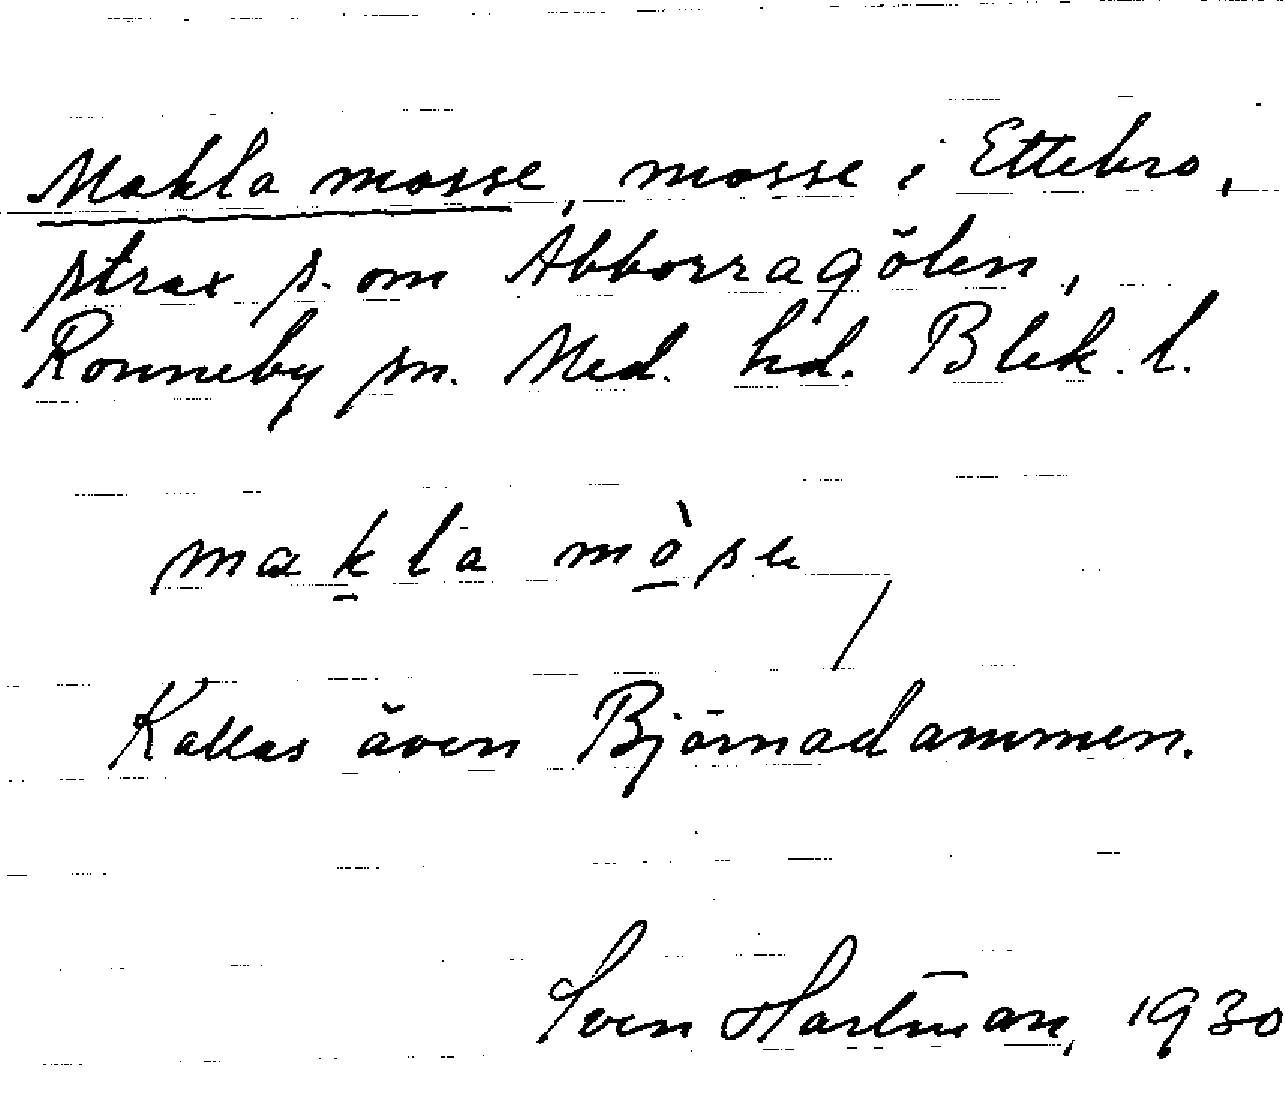 Makla mosse, mosse i Ettebro,
strax s. om Abborragölen,
Ronneby sn. Med. hd. Blek. l.
makla mòse
Kallas även Björnadammen.
Sven Hartman, 1930